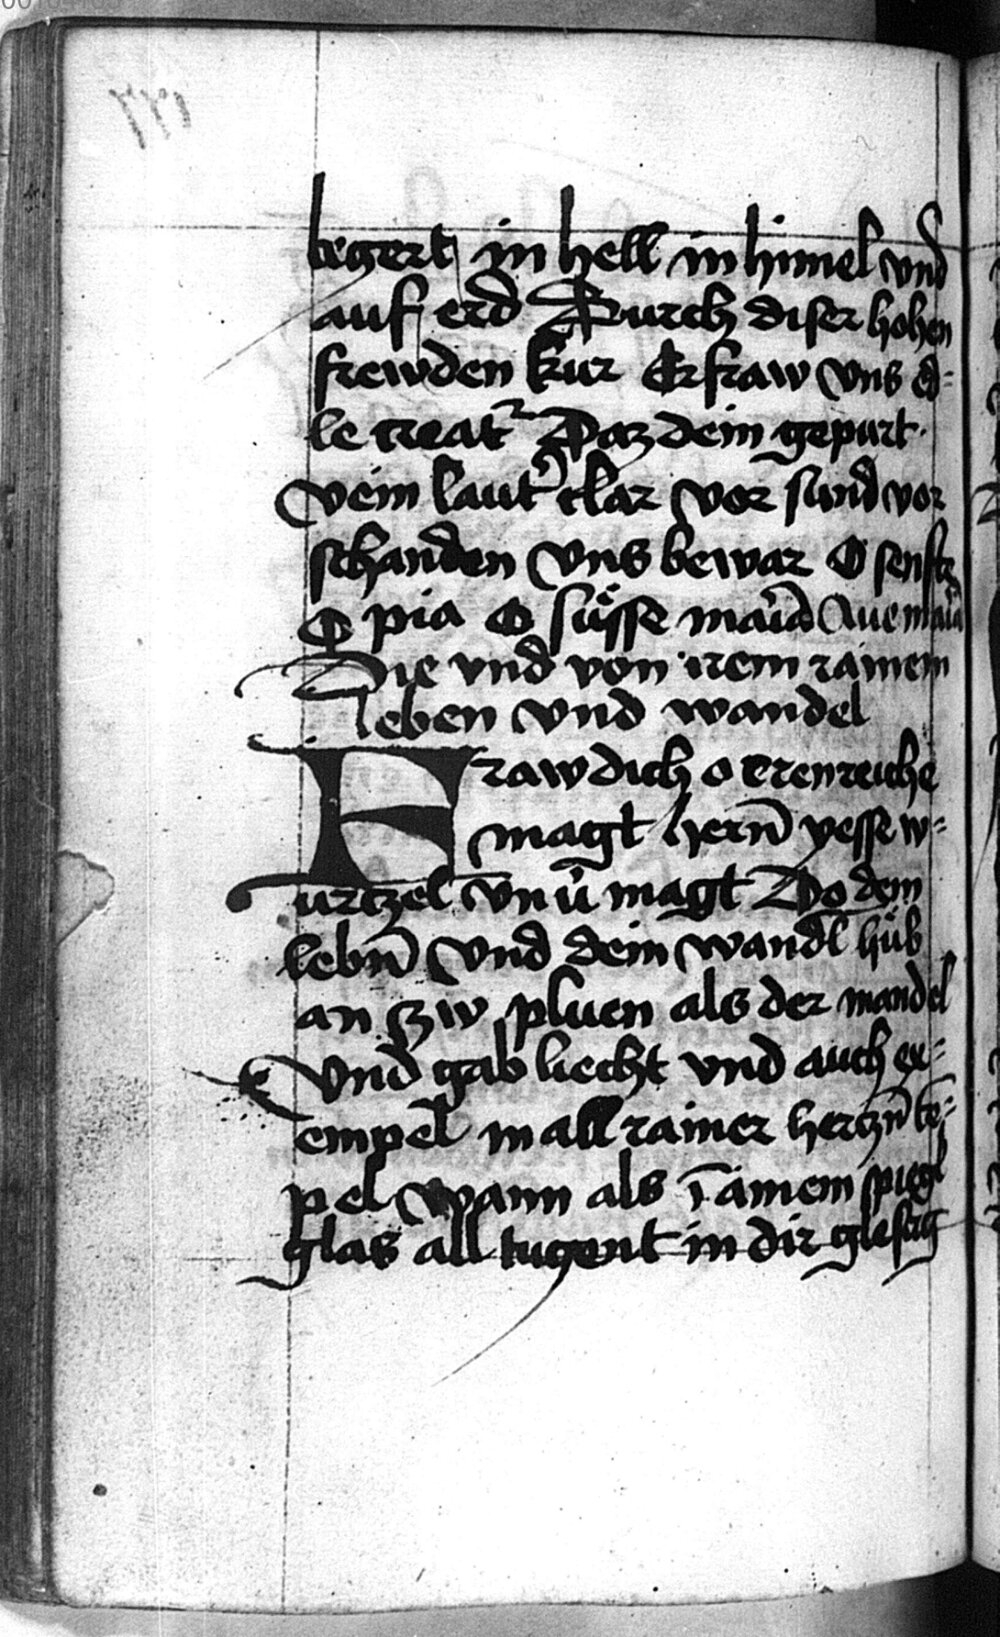 begert in hell in himel vnd
auf erd Durch diser hohen
frewden kur Erfraw vns ed=
le creatˀ Daz dein gepurt
vein lautˀ clar vor sund vor
schanden vns bewar O senfte
O pia O süsse maria Aue maria
Die vnd von irem rainem
leben vnd wandel
Fraw dich o erenreiche
magt hern̄ yesse w=
urtzel vn̄ magt Do dem
lebn̄ vnd dein wandl hüb
an zw pluen als der mandel
Vnd gab liecht vnd auch ex=
empel in all rainer hertzn̄ te=
pel Wann als ī ainem spiegl
glas all tugent in dir